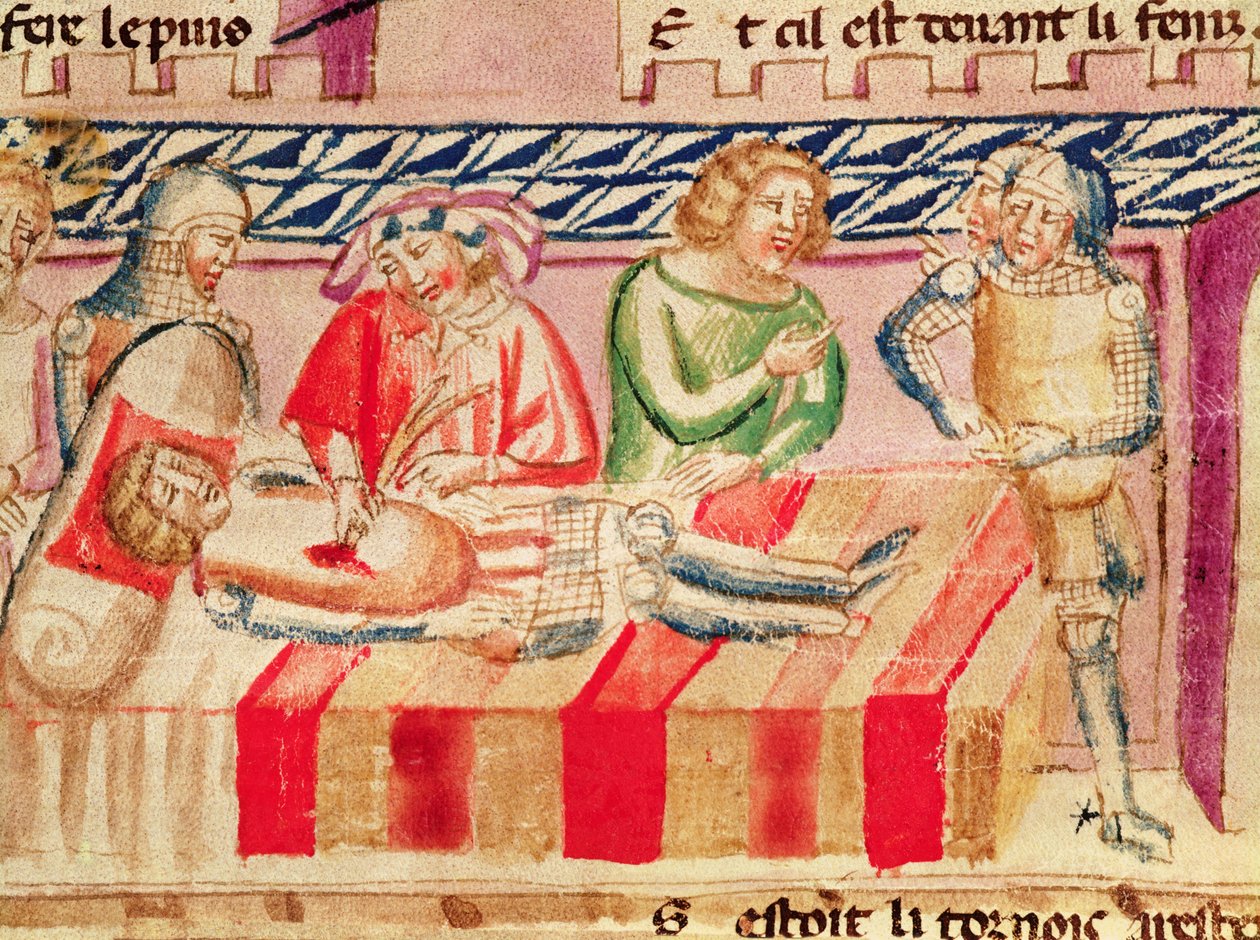 fere lepuis
Et cil est deuant li feniz
Sestoit li tornois